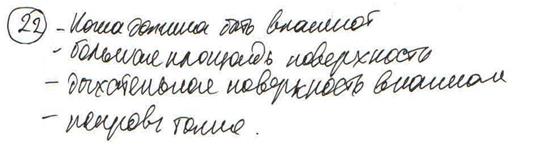 (22) - Кожа должна быть влажной
- большая площадь поверхность
- дыхательная поверхность влажная
- покровы тонкие.